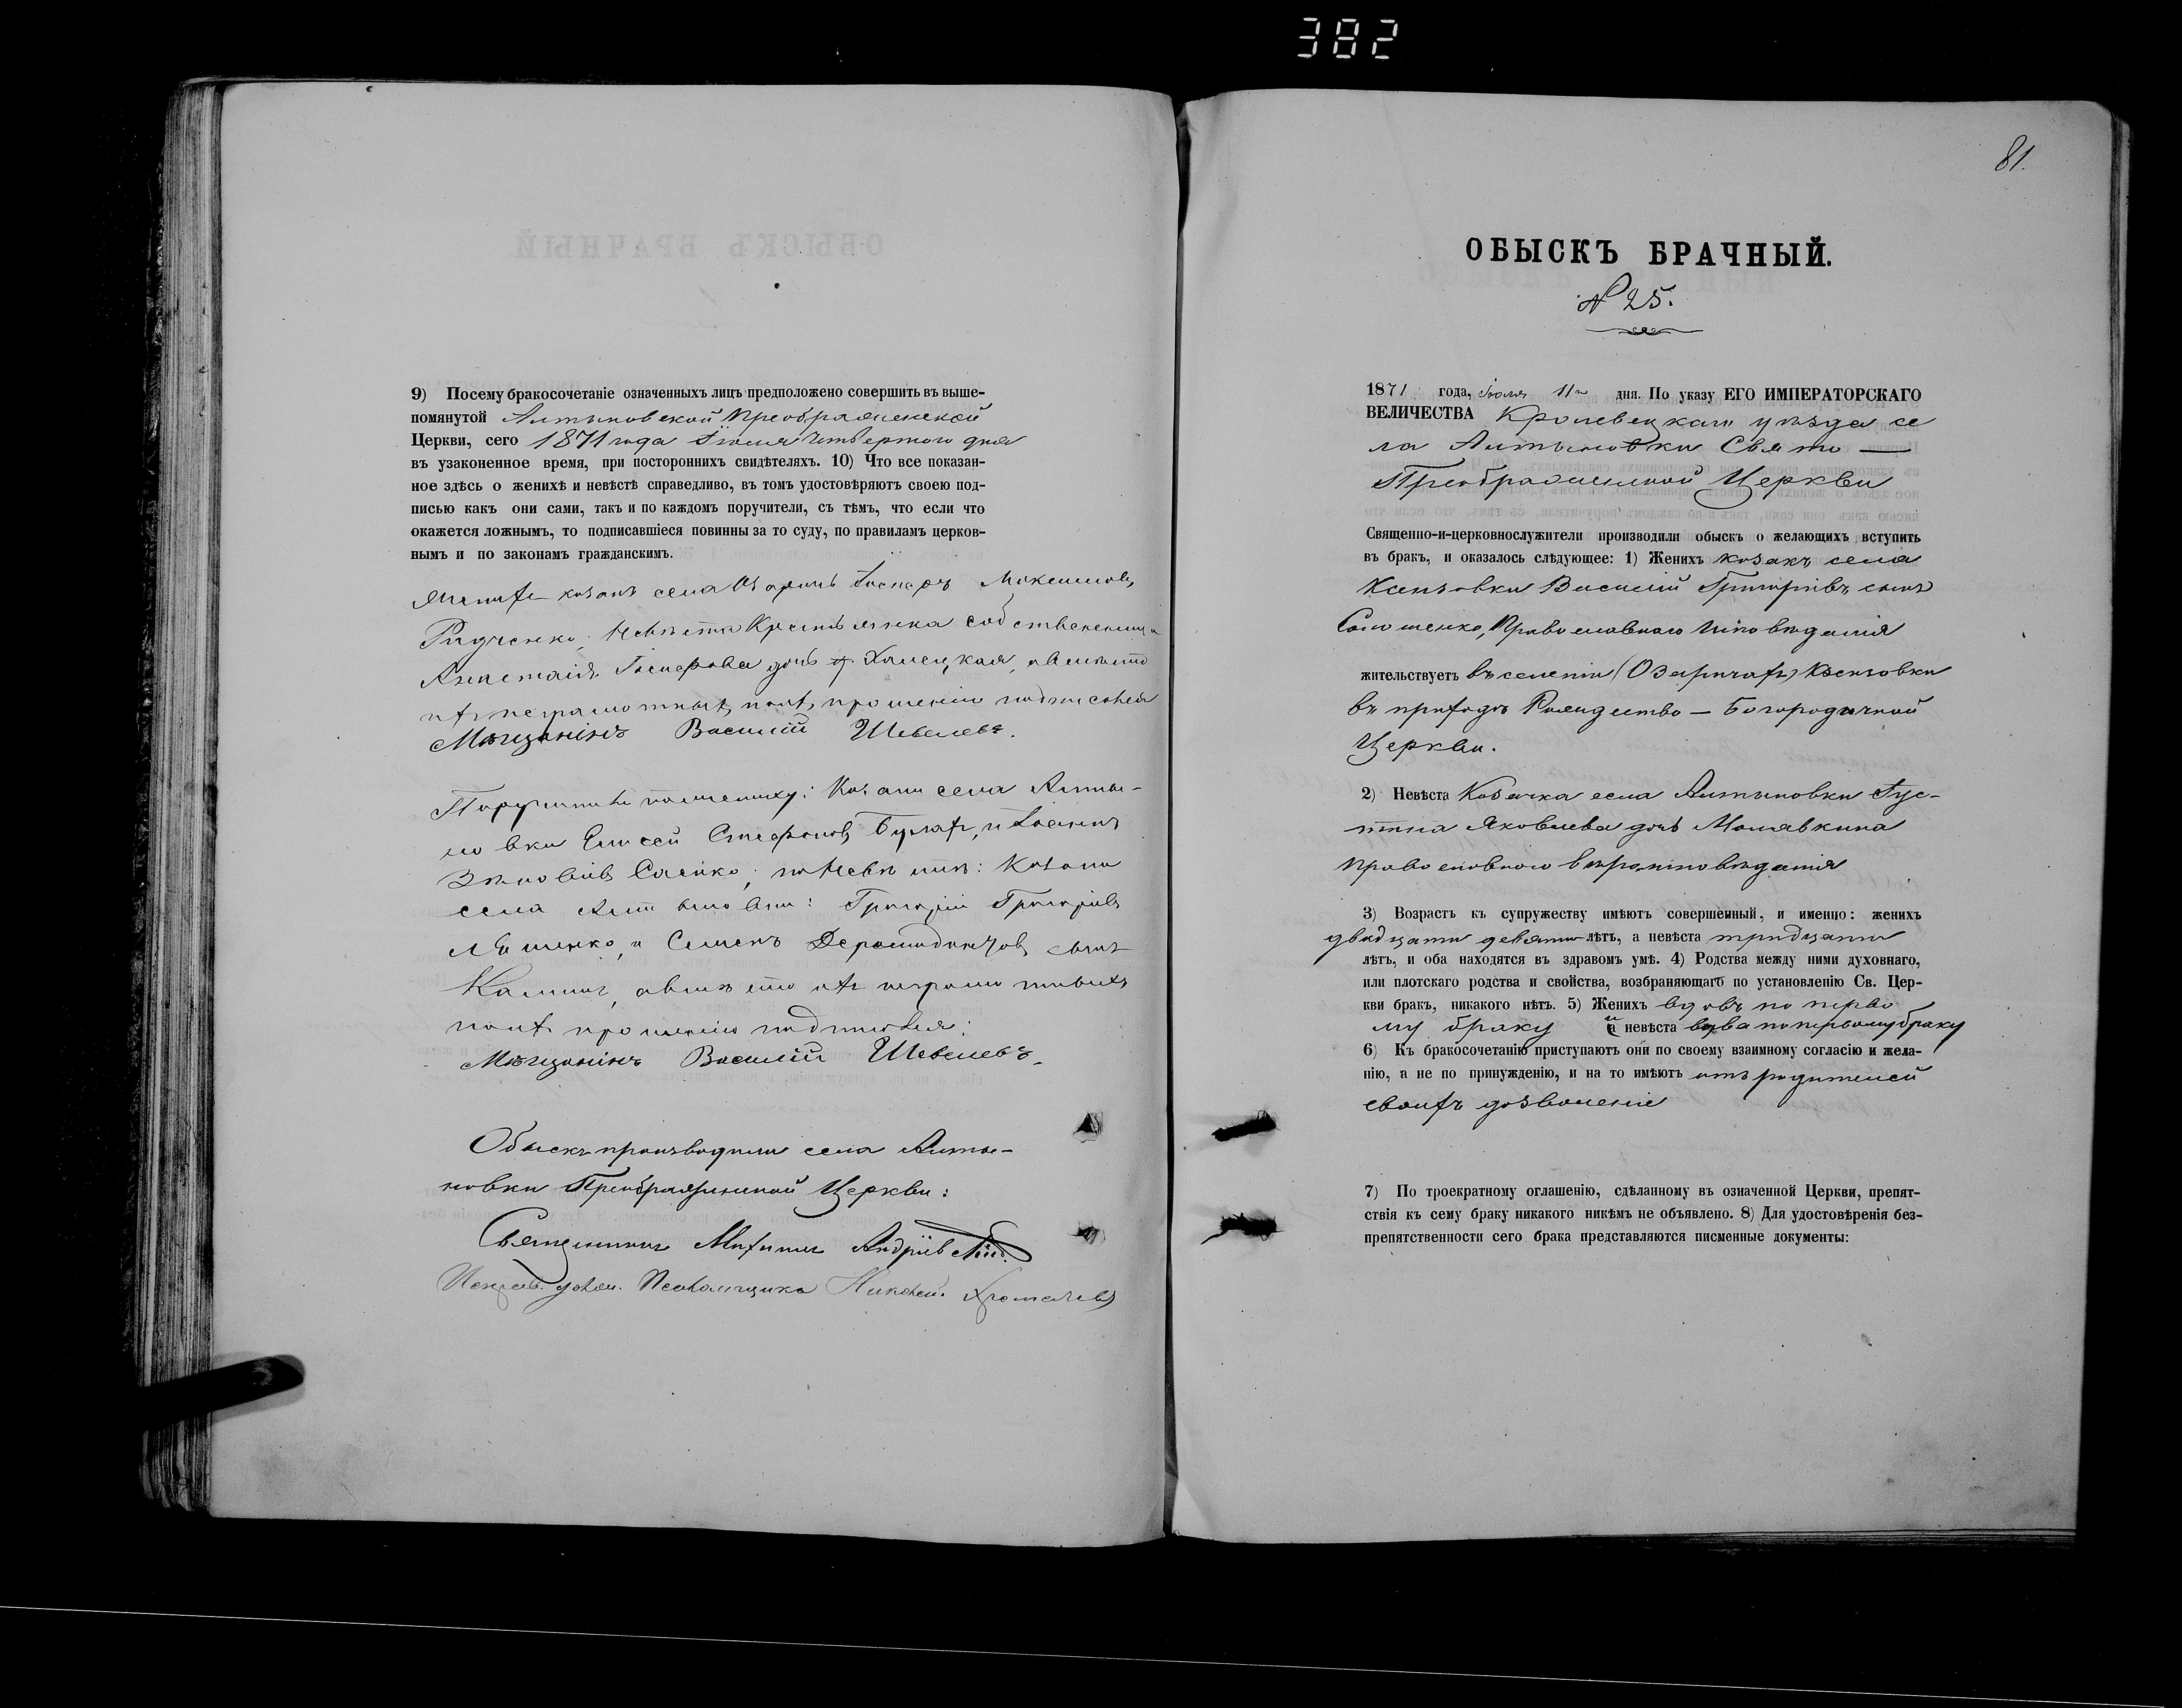 382
9) Посему бракосочетаніе означенныхъ лицъ предположено совершить въ выше-
помянутой Алтыновской Преображенской
Церкви, сего 1871 года Іюля четвертого дня
въ узаконенное время, при постороннихъ свидѣтеляхъ. 10) Что все показан-
ное здѣсь о женихѣ и невѣстѣ справедливо, въ томъ удостовѣряютъ своею под-
писью какъ они сами, такъ и по каждомъ поручители, съ тѣмъ, что если что
окажется ложнымъ, то подписавшіеся повинны за то суду, по правиламъ церков-
нымъ и по законамъ гражданскимъ.
Женихъ козакъ села
Радченко, Невѣста Крестьянка собственница
Анастасія дочь а вмѣсто
ихъ неграмотныхъ, по ихъ прошенію подписался
Мѣщанинъ Василій Шевелевъ.
Поручители по женихѣ: Козаки села Алты-
новки Елисей Стефановъ Бугаръ, и
Саенко; по Невѣстѣ: Козаки
села Алтыновки: Григорій Григоріевъ
и Семенъ сынъ
а вмѣсто ихъ неграмотныхъ
по ихъ прошенію подписался:
Мѣщанинъ Василій Шевелевъ.
Обыскъ производили села Алты-
новки Преображенской Церкви:
Священникъ Андріевскій
Исправ. долж. Псаломщика Николай
81.
ОБЫСКЪ БРАЧНЫЙ.
№ 25.
1871 года, Іюля 11го дня. По указу ЕГО ИМПЕРАТОРСКАГО
ВЕЛИЧЕСТВА Кролевецкаго уѣзда се
ла Алтыновки Свято —
Преображенской Церкви
Священно-и-церковнослужители производили обыскъ о желающихъ вступить
въ бракъ, и оказалось слѣдующее: 1) Женихъ козакъ села
Ксензовки Василій Григоріевъ сынъ
Православнаго Исповѣданія
жительствуетъ въ селеніи (Озаричахъ) Ксензовки
въ приходѣ Рождество — Богородичной
Церкви.
2) Невѣста Козачка села Алтыновки Іус-
тина Яковлева дочь Малявкина
православного вѣроисповѣданія
3) Возрастъ къ супружеству имѣютъ совершенный, и именно: женихъ
двадцати девяти лѣтъ, а невѣста тридцати
лѣтъ, и оба находятся въ здравомъ умѣ. 4) Родства между ними духовнаго,
или плотскаго родства и свойства, возбраняющаго по установленію Св. Цер-
кви бракъ, никакого нѣтъ. 5) Женихъ вдовъ по перво
му браку и невѣста вдова по первому браку
6) Къ бракосочетанію приступаютъ они по своему взаимному согласію и жела-
нію, а не по принужденію, и на то имѣютъ отъ родителей
своихъ дозволеніе
7) По троекратному оглашенію, сдѣланному въ означенной Церкви, препят-
ствія къ сему браку никакого никѣмъ не объявлено. 8) Для удостовѣренія без-
препятственности сего брака представляются писменные документы: